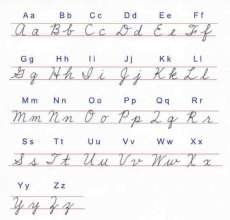 Aa Bb Cc Dd Ee Ff
Aa Bb Cc Dd Ee Ff
Gg Hh Ii Jj Kk Ll
Gg Hh Ii Jj Kk Ll
Mm Nn Oo Pp Qq Rr
Mm Nn Oo Pp Qq Rr
Ss Tt Uu Vv Ww Xx
Ss Tt Uu Vv Ww Xx
Yy Zz
Yy Zz